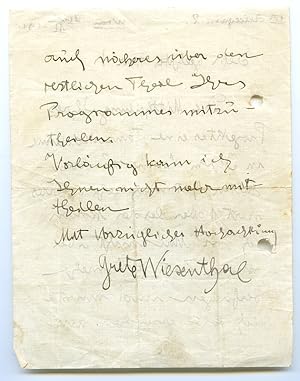 auch näheres über den
restlichen Theil Ihres
Programmes mitzu-
theilen.
Vorläufig kann ich
Ihnen nicht mehr mit
theilen
Mit vorzüglicher Hochachtung
Grete Wiesenthal